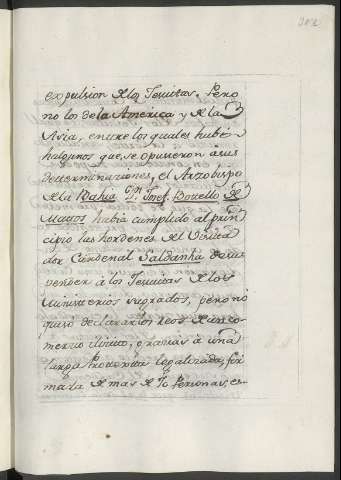 302
expulsion de los Jesuitas. Pero
no los de la America y de la
Asia, entre los quales hubie
halgunos que se opusieron a sus
determinaciones, el Arzobispo
de la Bahia Dn. Josef. Botello de
Matos habia cumplido al prin
cipio las hordenes del Visita
dor Cardenal Saldanha de sus
pender à los Jesuitas de los
ministerios sagrados, pero no
quiso declararlos reos de un co
mercio ilicito, gracias à una
larga Probanza legalizada, fir
mada de mas de 70 Personas, es-